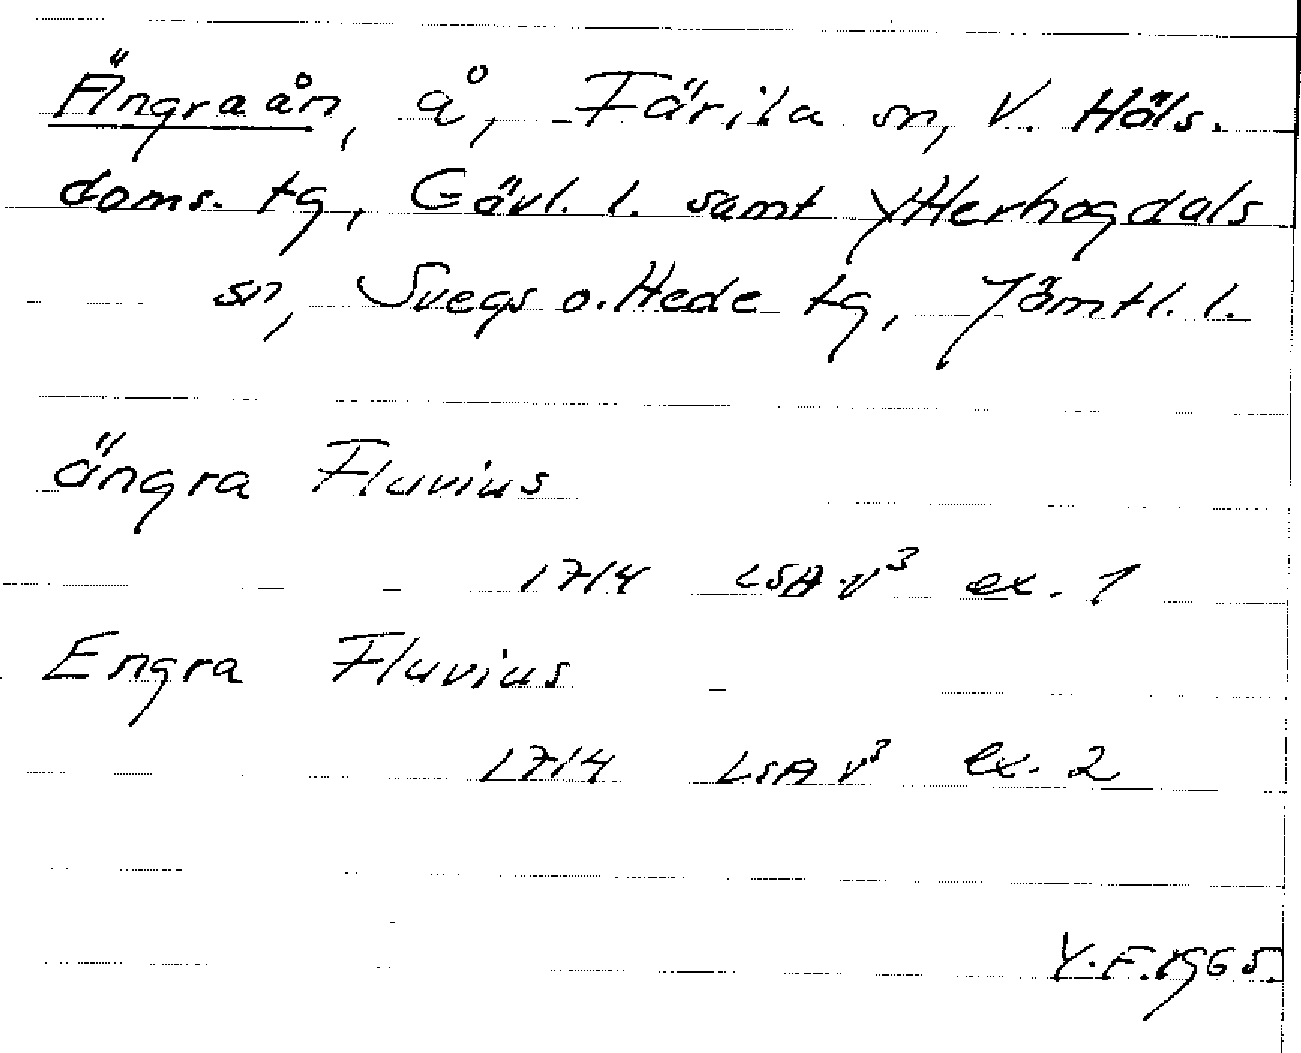 Ängraån, å, Färila sn, V. Häls.
doms. tg, Gävl. l. samt Ytterhogdals
sn, Svegs o. Hede tg, Jämtl. l.
ängra Fluvius
1714 LSA V³ ex. 1
Engra Fluvius
1714 LSA V³ ex. 2
Y.F. 1965.